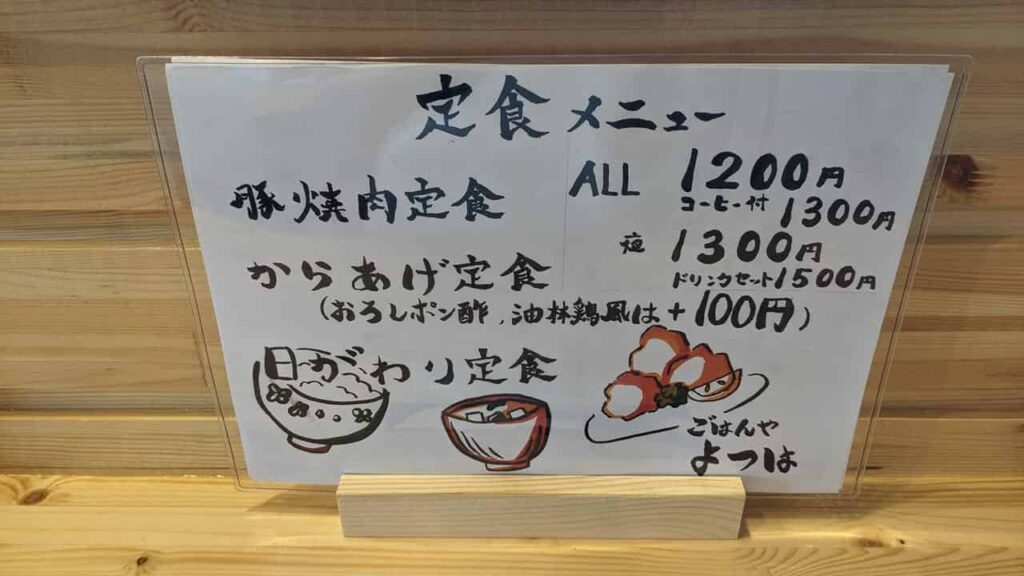 定食メニュー
豚焼肉定食
ALL 1200円
コーヒー付 1300円
夜 1300円
ドリンクセット1500円
からあげ定食
(おろしポン酢、油林鶏風は+100円)
日がわり定食
ごはんや
よつは